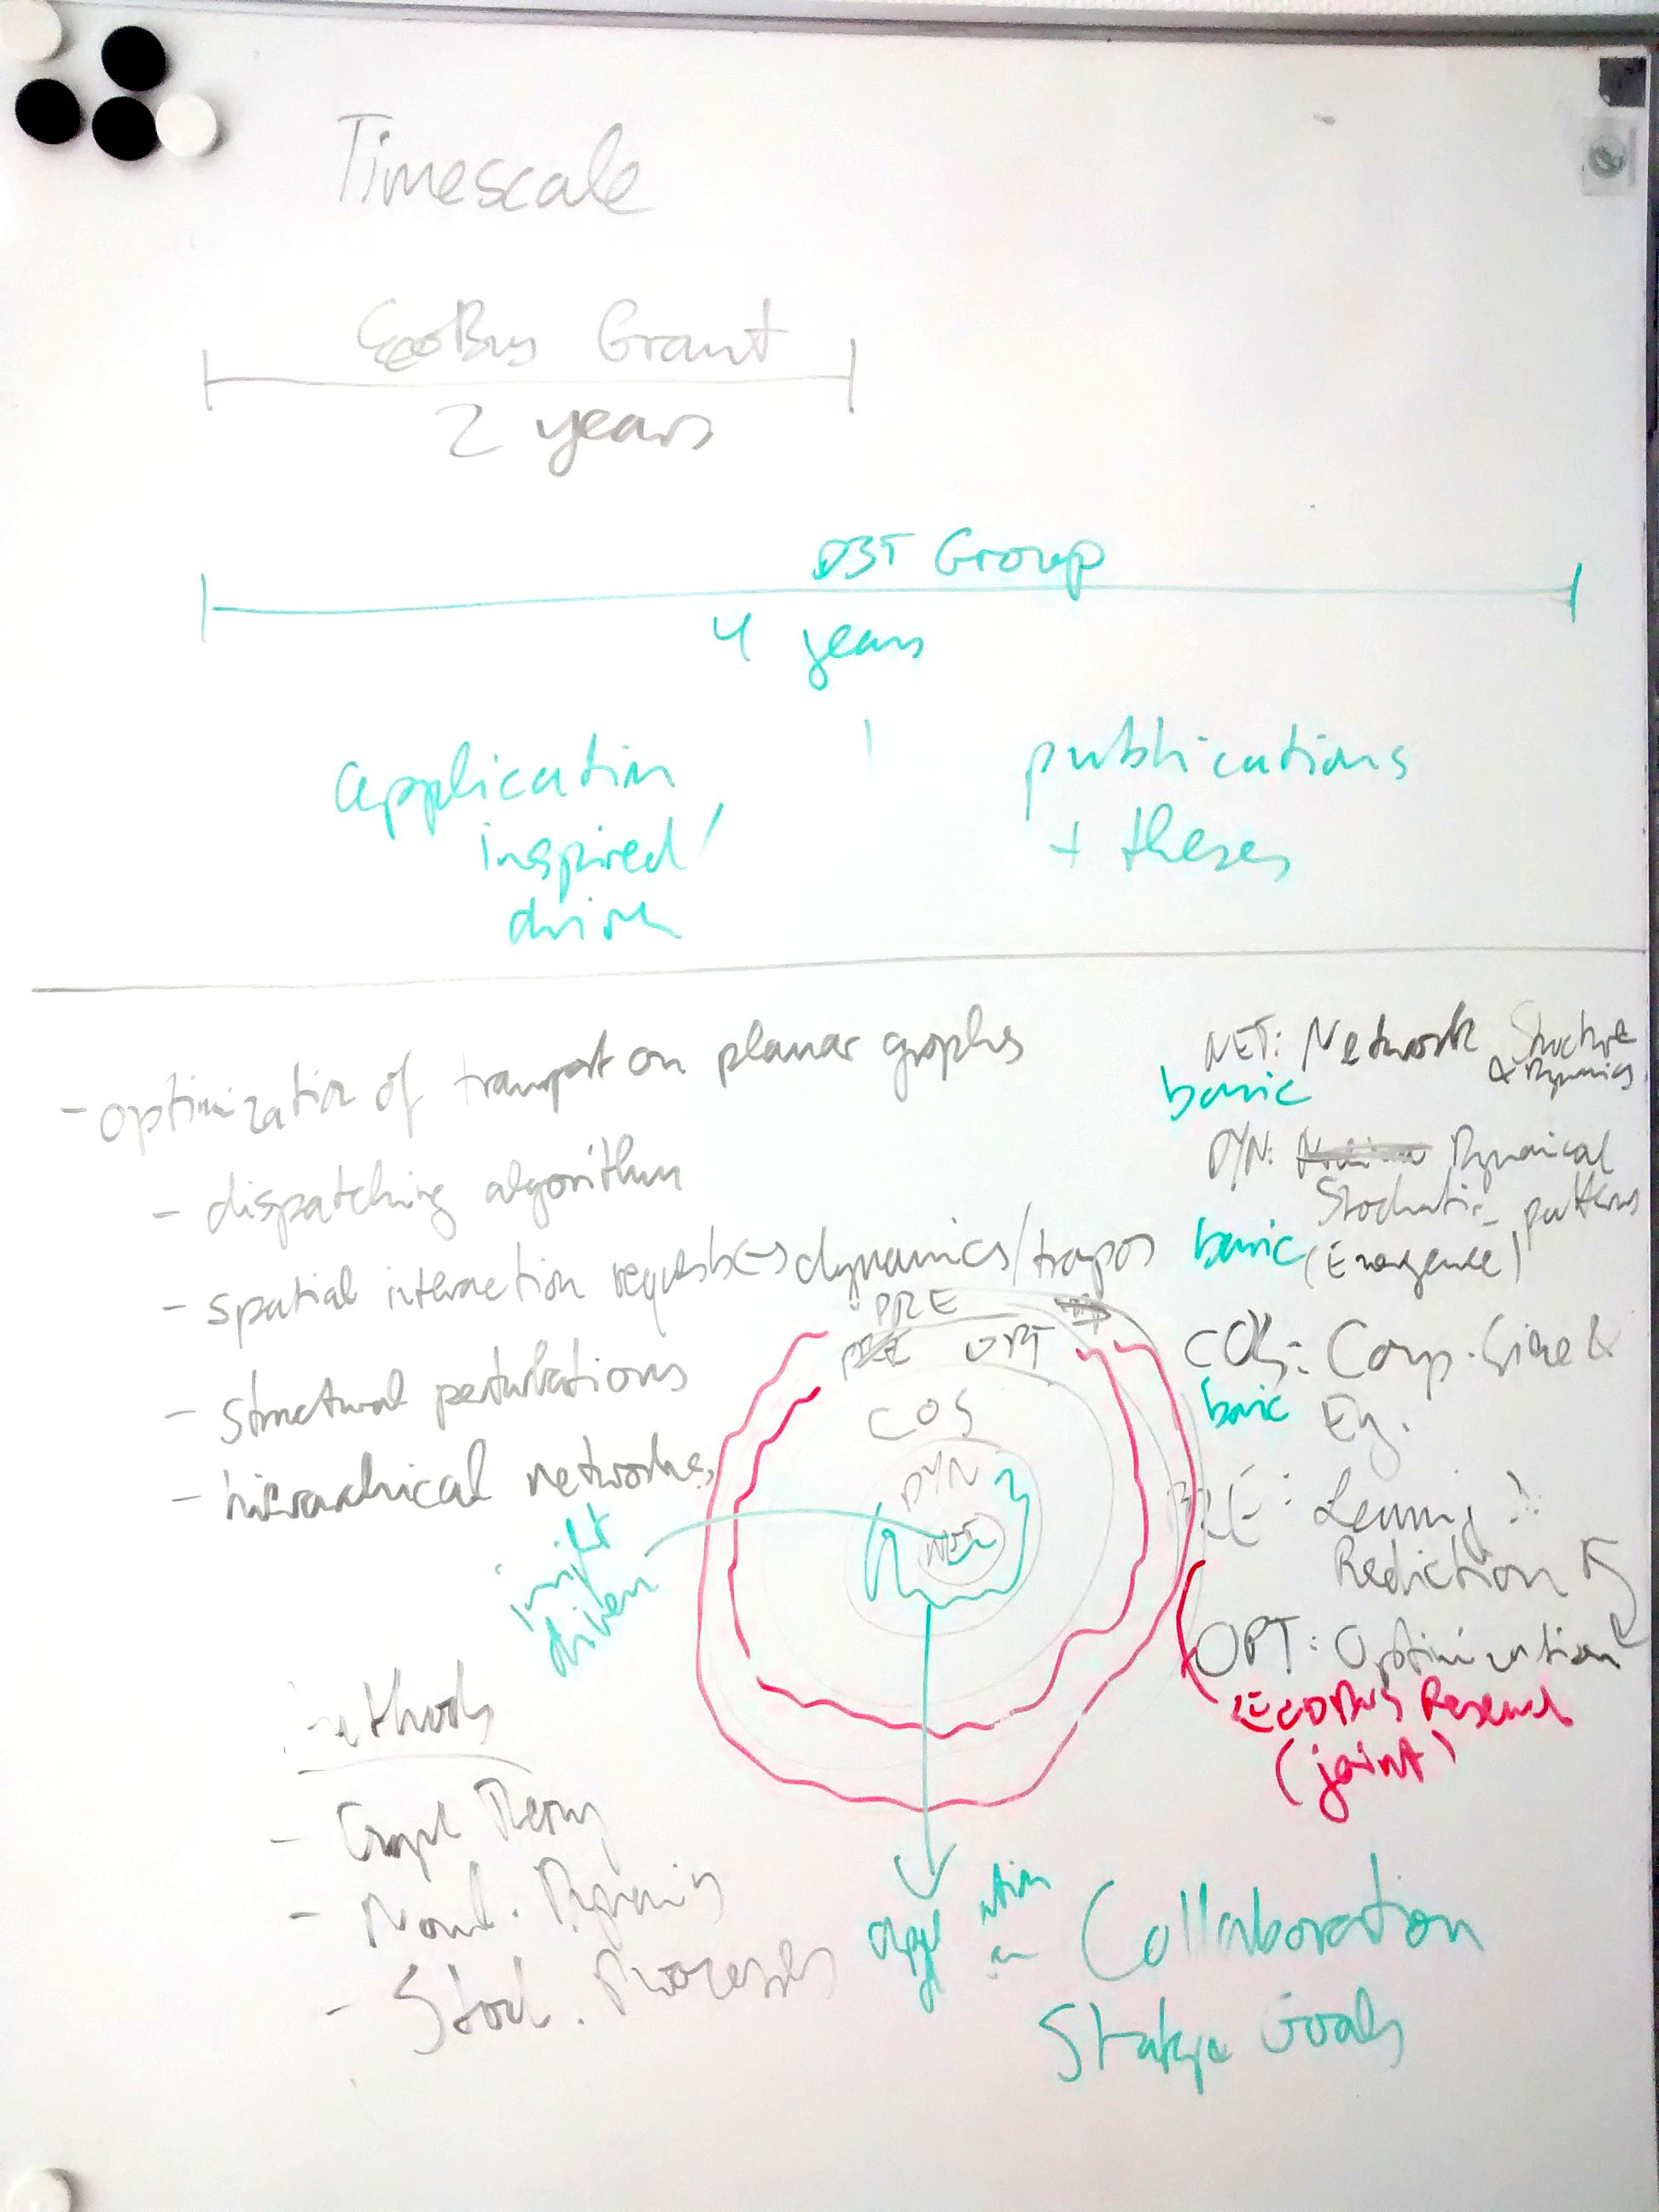 Timescale
EcoBus Grant
2 years
D3T Group
4 years
application
inspired/
driven
publications
+ theses
- optimization of transport on planar graphs
- dispatching algorithm
- spatial interaction requests dynamics/
- structural perturbations
- hierarchical networks
NET: Network Structure
& Dynamics
basic
DYN: Dynamical
Stochastic patterns
basic (Emergence)
COS: Comp. Science &
basic Eng.
PRE: Learning &
Prediction
OPT: Optimization
ECOBUS Research
(joint)
PRE
PRE OPT
COS
DYN
NET
insight
driven
Methods
- Graph Theory
- Nonl. Dynamics
- Stoch. Processes
Collaboration
Goals